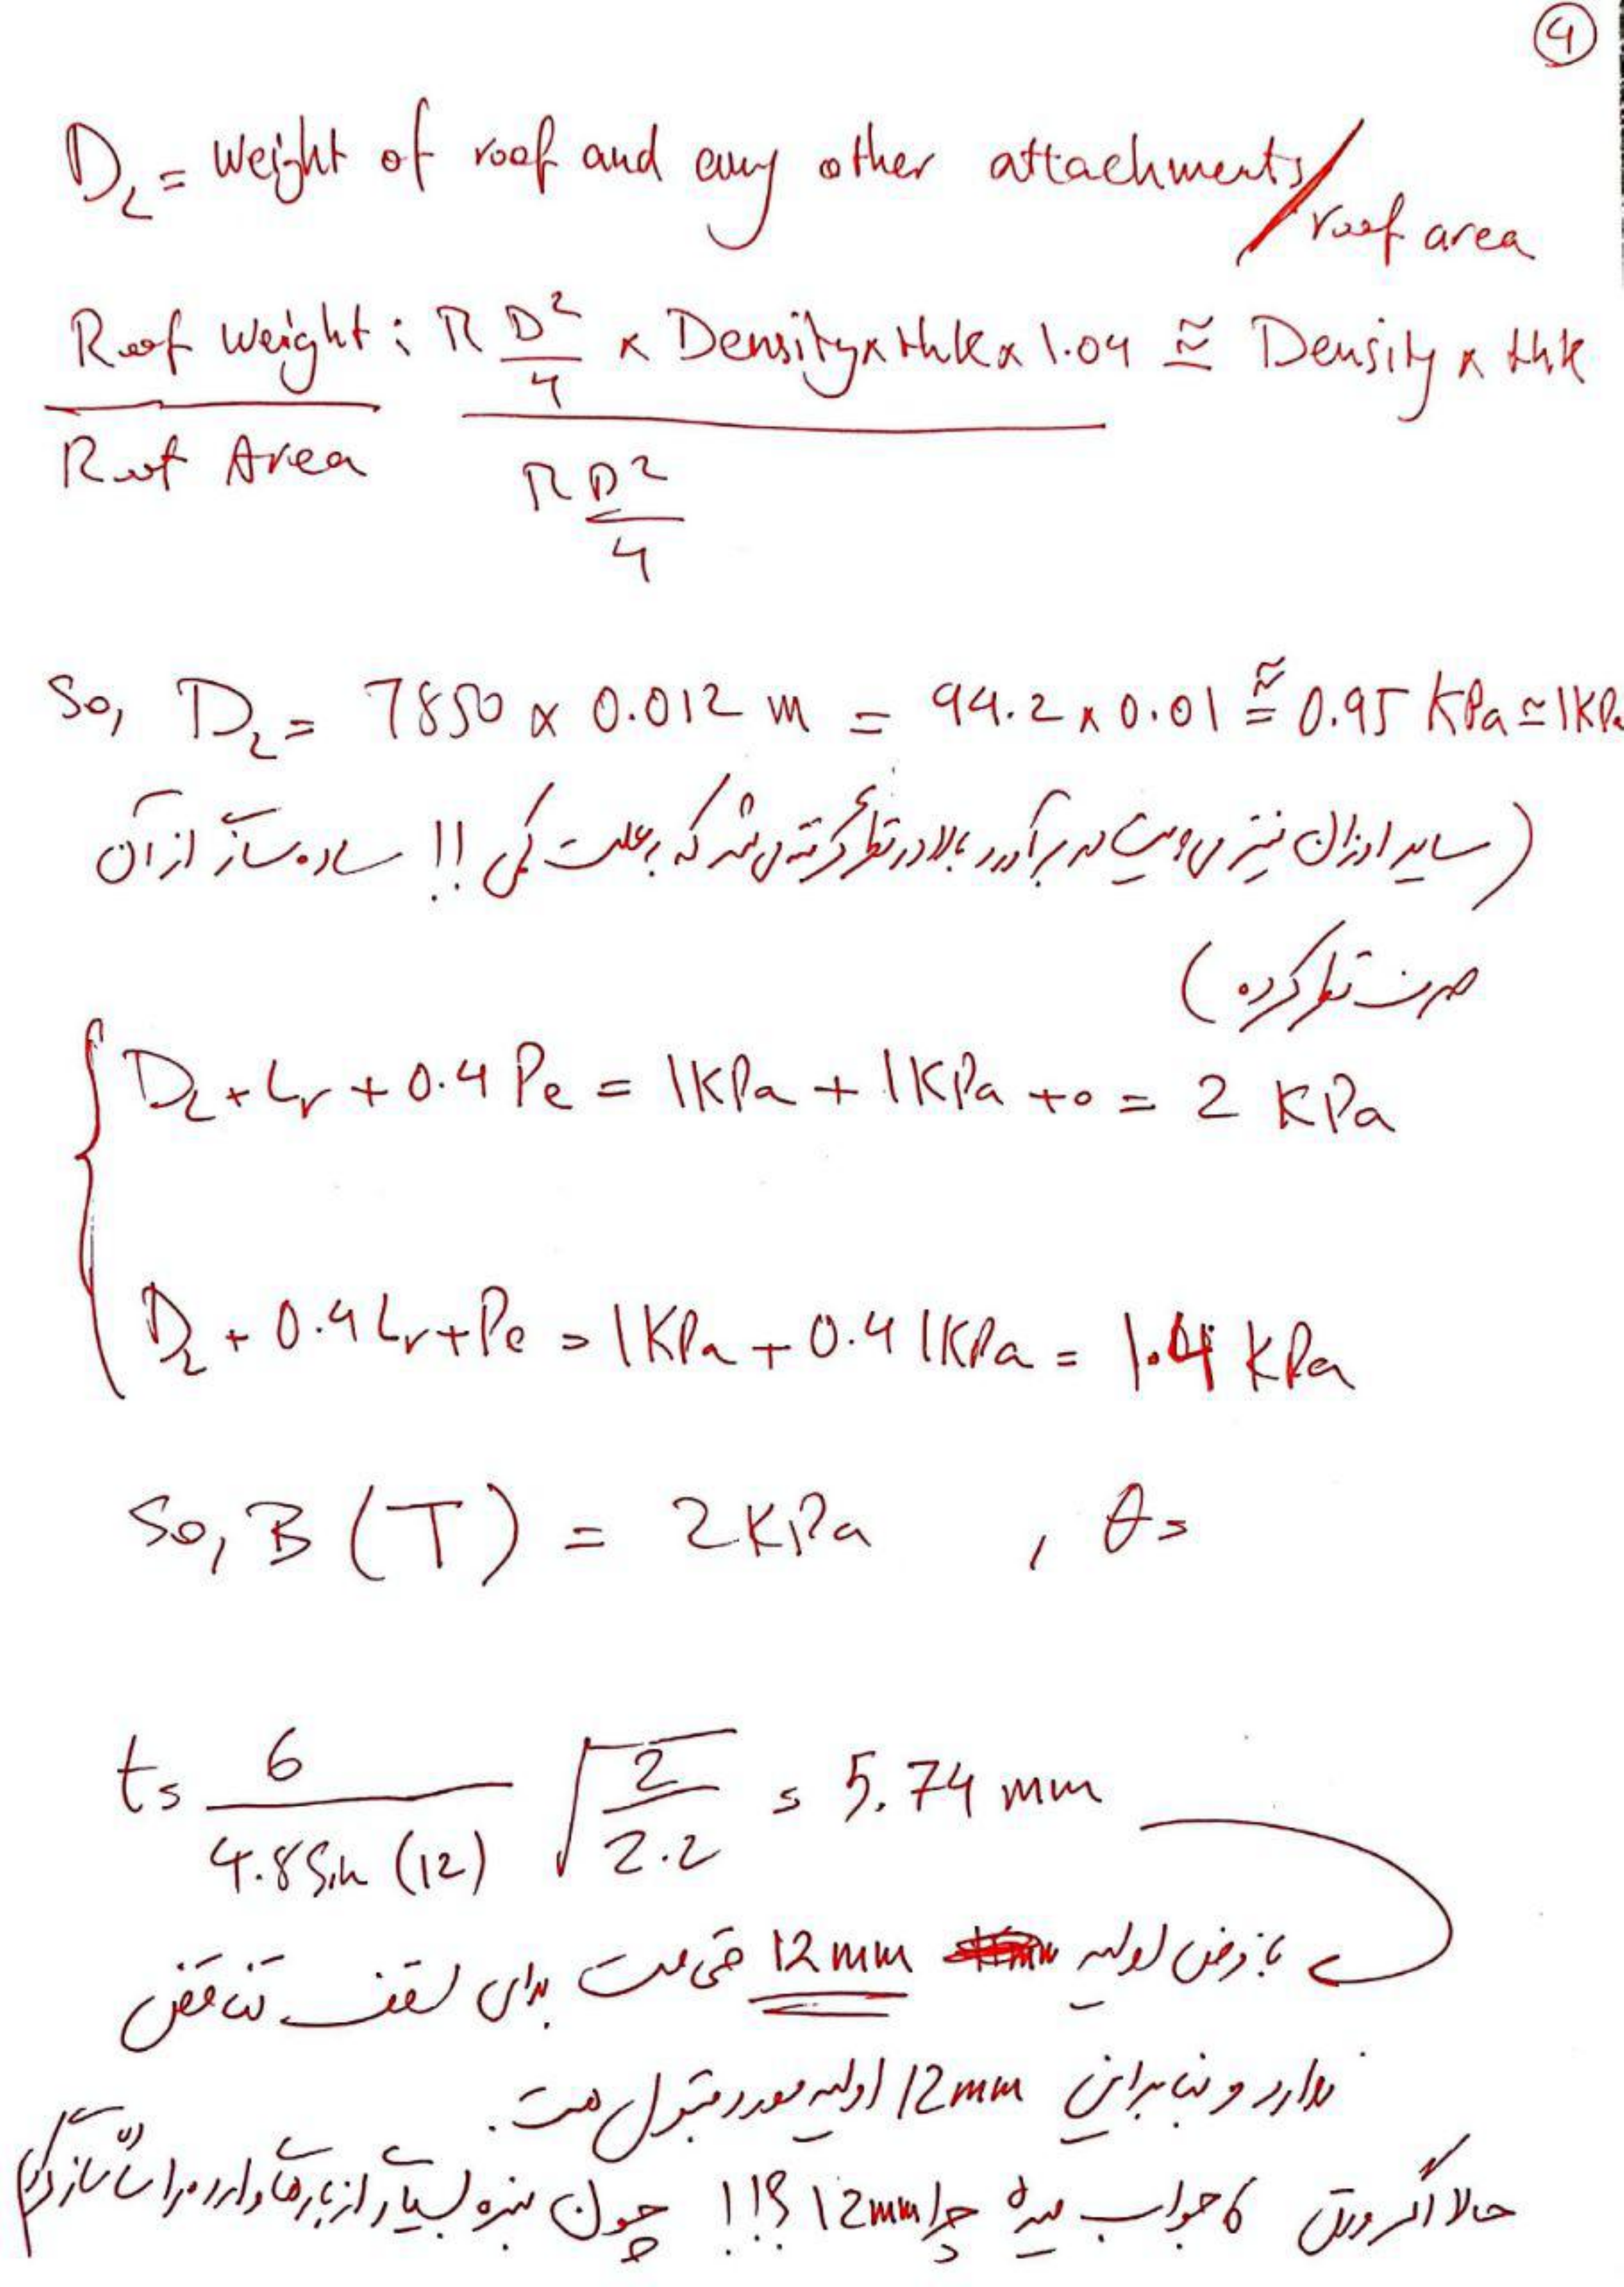 4
D_L = Weight of roof and any other attachments/
roof area
Roof Weight : π D²/4 × Density × thk × 1.04 ≅ Density × thk
Roof Area π D²/4
So, D_L = 7850 × 0.012 m = 94.2 × 0.01 ≅ 0.95 KPa ≃ 1KPa
(سایر اوزان نیز می بایست در برآورد بالا در نظر گرفته می شد که به علت کمی !! ساده سازی از آن
صرف نظر کرده)
D_L + Lr + 0.4 Pe = 1KPa + 1KPa + 0 = 2 KPa
D_L + 0.4 Lr + Pe = 1KPa + 0.4 1KPa = 1.04 KPa
So, B (T) = 2KPa , θ =
t = 6 / 4.8 Sin (12) √ 2 / 2.2 = 5.74 mm
با فرض اولیه 12mm ضخامت برای سقف تناقض
ندارد و بنابراین 12mm اولیه مورد قبول است.
حالا اگر ورق 6 جواب میده چرا 12mm ؟!!! چون بنده بسیاری از بارهای وارده را ساده سازی